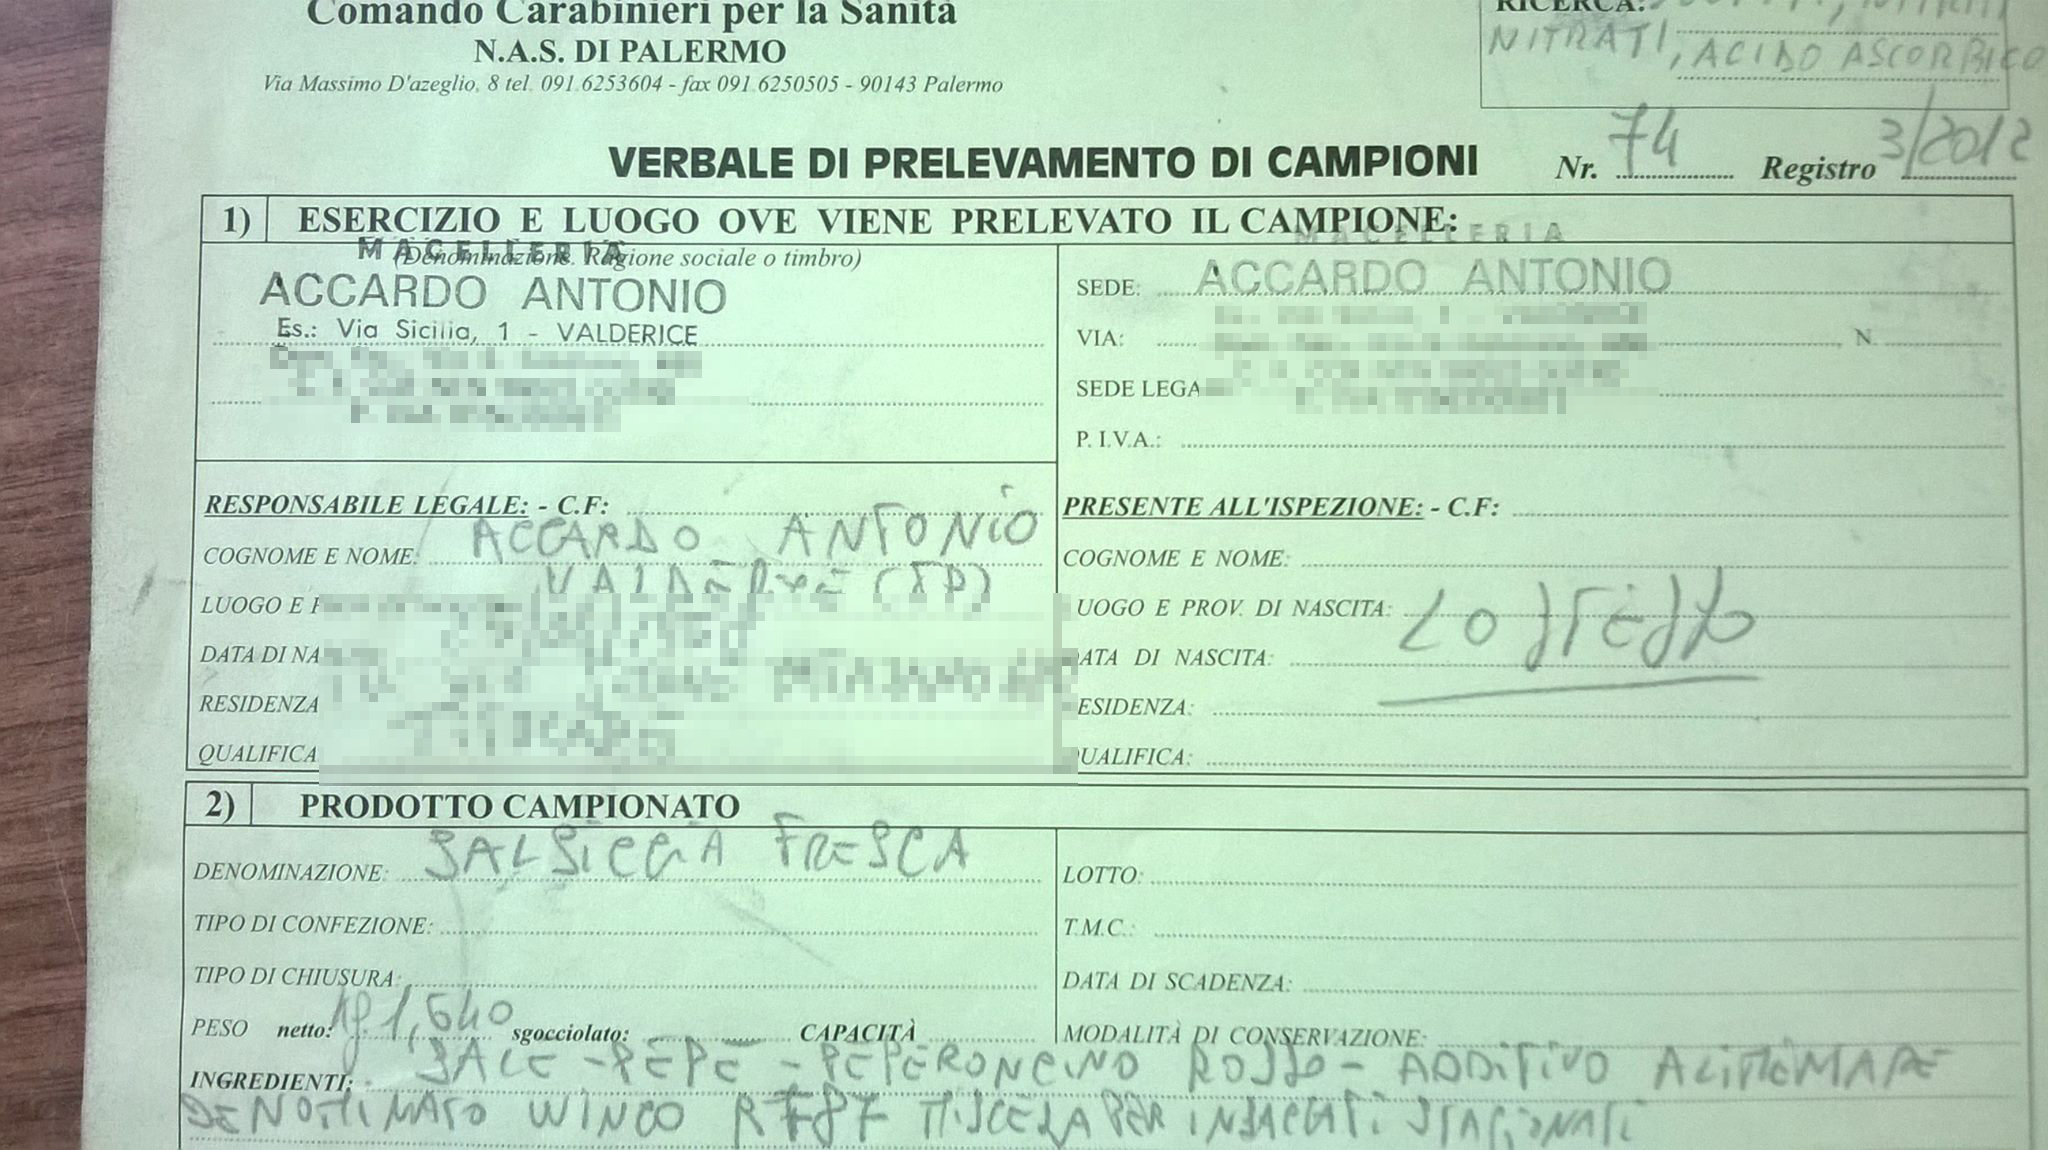 Comando Carabinieri per la Sanità
N.A.S. DI PALERMO
Via Massimo D'azeglio, 8 tel. 091 6253604 - fax 091 6250505 - 90143 Palermo
RICERCA:
NITRATI, ACIDO ASCORBICO
VERBALE DI PRELEVAMENTO DI CAMPIONI Nr. 74 Registro 3/2012
1) ESERCIZIO E LUOGO OVE VIENE PRELEVATO IL CAMPIONE:
MACELLERIA
(Denominazione. Ragione sociale o timbro)
ACCARDO ANTONIO
Es.: Via Sicilia, 1 - VALDERICE
MACELLERIA
SEDE: ACCARDO ANTONIO
VIA: N.
SEDE LEGA
P. I.V.A.:
RESPONSABILE LEGALE: - C.F:
COGNOME E NOME: ACCARDO ANTONIO
LUOGO E VALDERICE (TP)
DATA DI NA
RESIDENZA
QUALIFICA
PRESENTE ALL'ISPEZIONE: - C.F:
COGNOME E NOME:
UOGO E PROV. DI NASCITA: LO STESSO
ATA DI NASCITA:
ESIDENZA:
UALIFICA:
2) PRODOTTO CAMPIONATO
DENOMINAZIONE: SALSICCIA FRESCA
TIPO DI CONFEZIONE:
TIPO DI CHIUSURA:
PESO netto: Kg. 1,640 sgocciolato: CAPACITÀ
LOTTO:
T.M.C.:
DATA DI SCADENZA:
MODALITÀ DI CONSERVAZIONE:
INGREDIENTI: SALE - PEPE - PEPERONCINO ROSSO - ADDITIVO ALIMENTARE
DENOMINATO WINCO MISCELA PER INSACCATI STAGIONATI